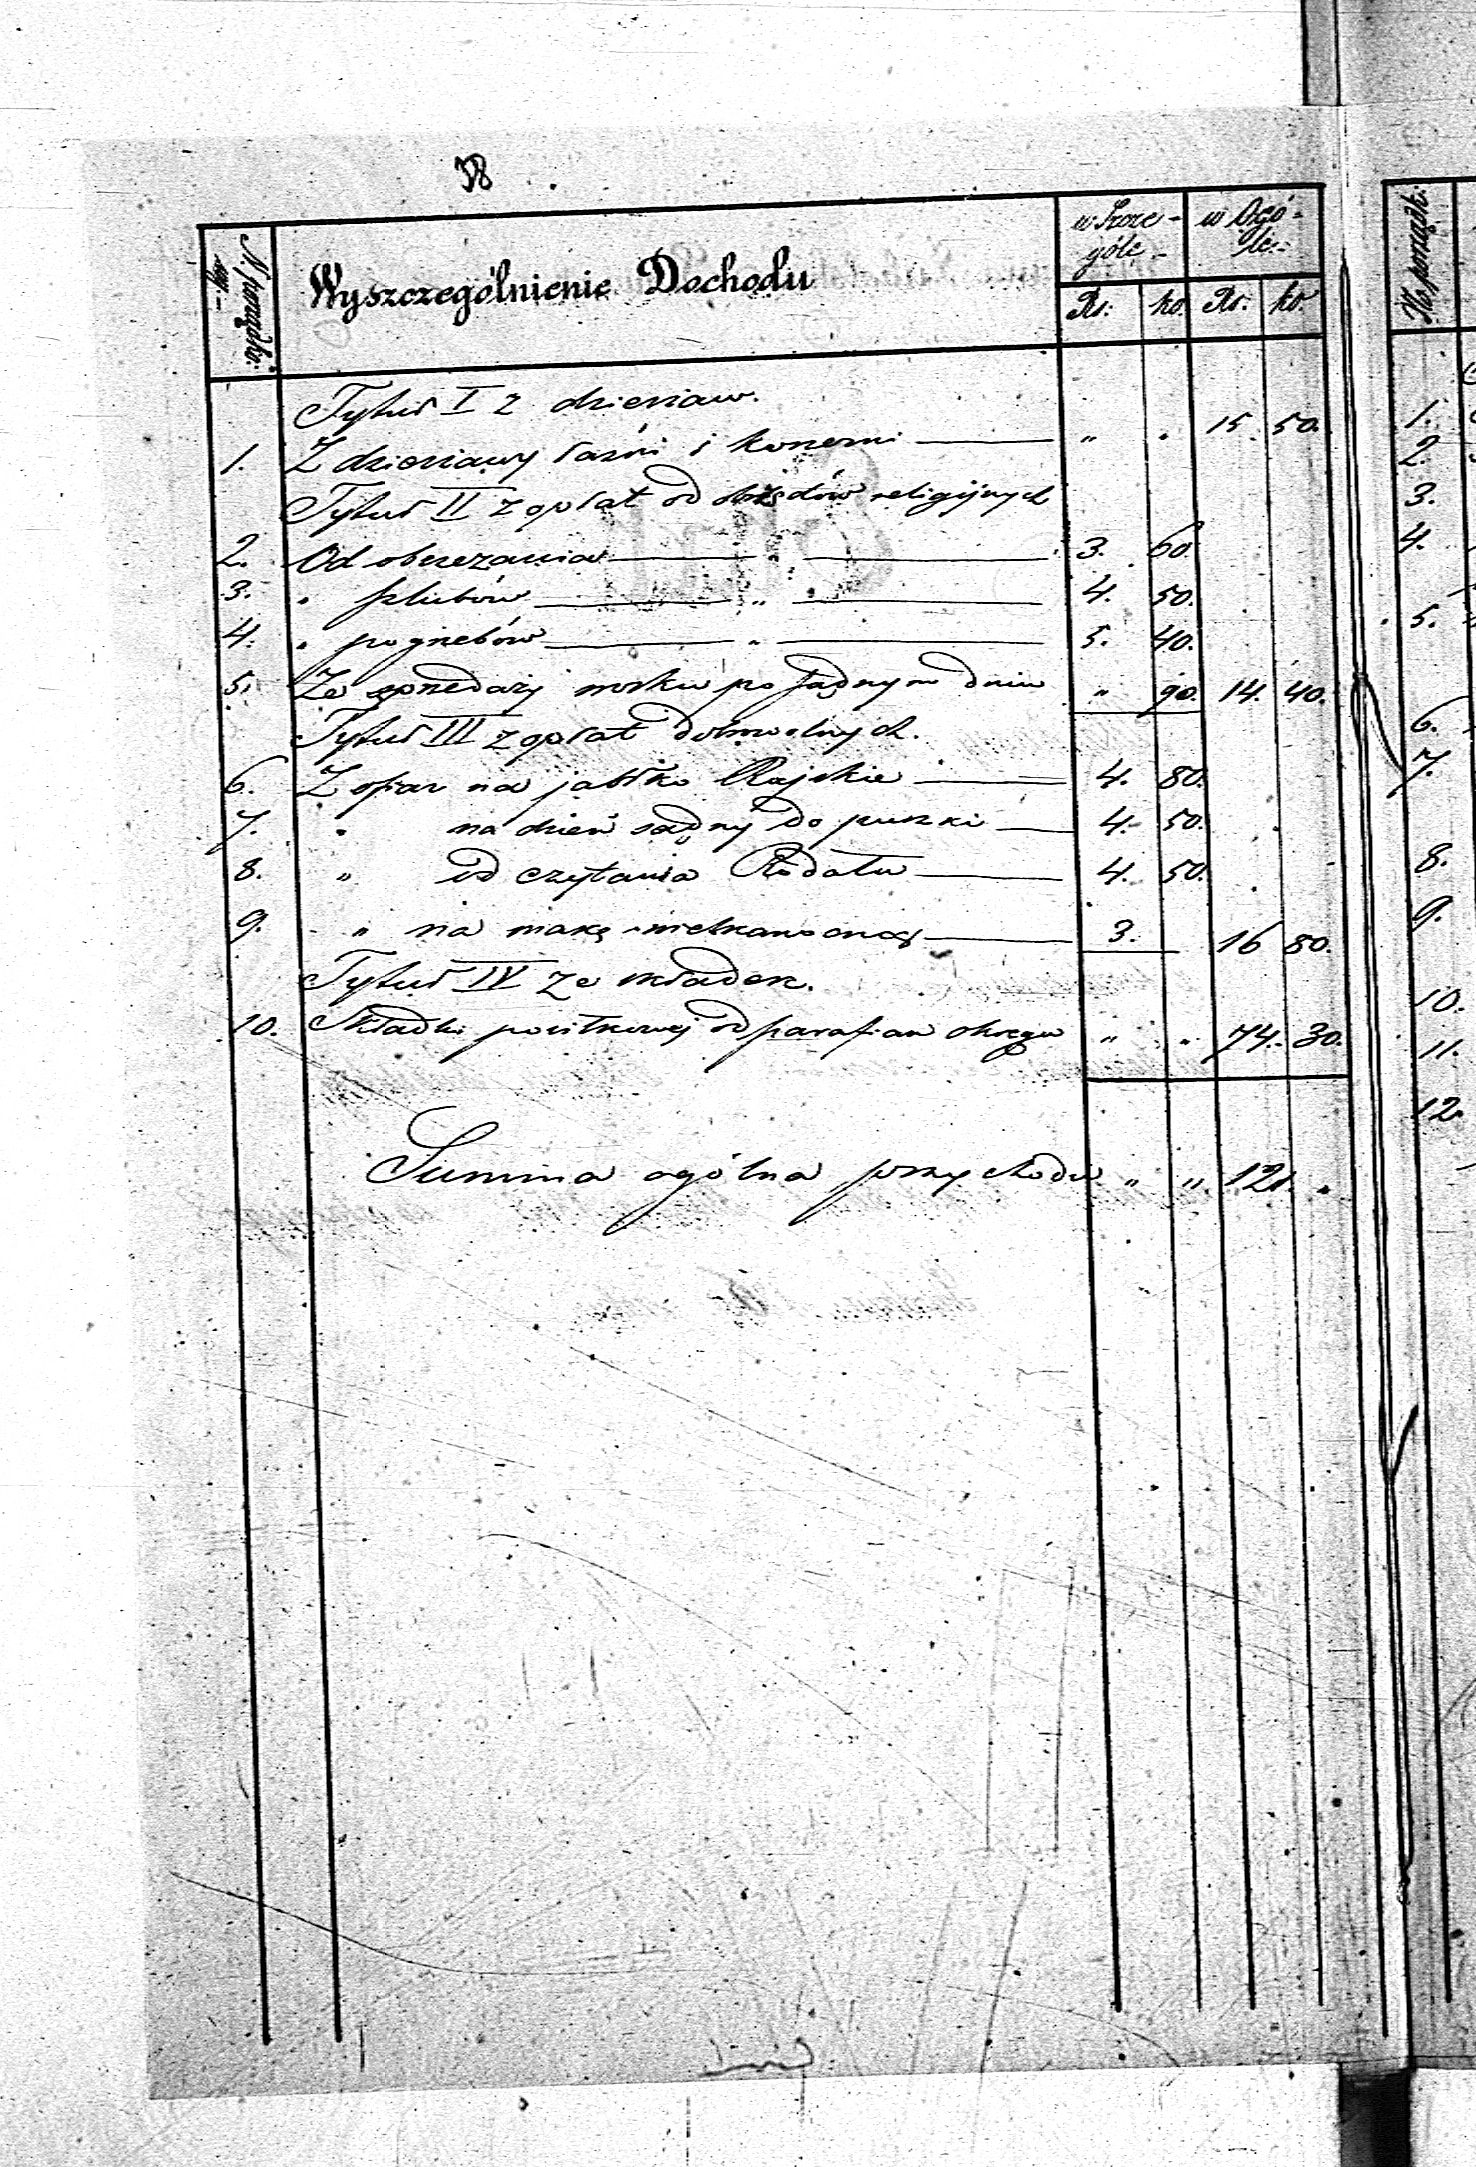 38
N. porządko-
wy
Wyszczególnienie Dochodu
w Szcze-
góle
w Ogó-
le
Rs. ko. Rs. ko.
Tytuł I z dzierżaw.
1. Z dzierżawy łaźni i " . 15. 50.
Tytuł II z opłat od obrzędów religijnych
2. Od obrzezania " 3. 60.
3. " szlubów " 4. 50.
4. " pogrzebów " 5. 40.
5. Ze sprzedaży po Sądnym dniu " 90. 14. 40.
Tytuł III z opłat dobrowolnych.
6. Z ofiar na jabłko Rajskie 4. 80.
7. " na dzień sądny do puszki 4. 50.
8. " od czytania Rodału 4. 50.
9. " na makę wielkanocną 3. 16 80.
Tytuł IV ze składek.
10. Składki od parafian okręgu " " 74. 30.
Summa ogólna przychodu " " 121. "
N. porządk.
1.
2.
3.
4.
5.
6.
7.
8.
9.
10.
11.
12.